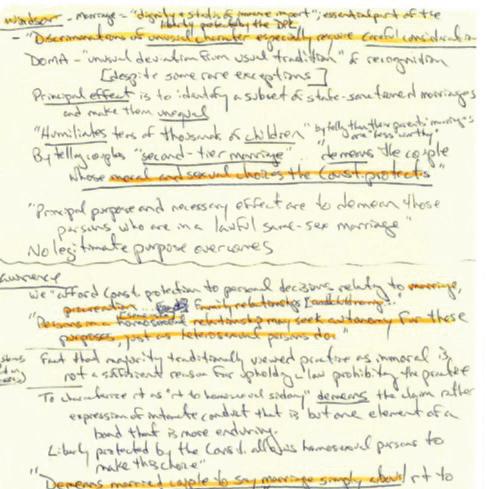 Windsor - marriage = "dignity & status of immense import"; essential part of the
liberty protected by the DPC
- "Discriminations of unusual character especially require careful consideration
DOMA - "unusual deviation from usual tradition" of recognition
[despite some rare exceptions]
Principal effect is to identify a subset of state-sanctioned marriages
and make them unequal
"Humiliates tens of thousands of children" by telling them their parents' marriages
are "less worthy"
By telling couples "second-tier marriage" .. "demeans the couple
whose moral and sexual choices the Const. protects"
"Principal purpose and necessary effect are to demean those
persons who are in a lawful same-sex marriage"
No legitimate purpose overcomes
Lawrence
We "afford const. protection to personal decisions relating to marriage,
procreation ... family relationships
"Persons in a homosexual relationship may seek autonomy for these
purposes just as heterosexual persons do"
Fact that majority traditionally viewed practice as immoral is
not a sufficient reason for upholding a law prohibiting the practice
To characterize it as "rt to homosexual sodomy" demeans the claim rather
expression of intimate conduct that is but one element of a
bond that is more enduring.
Liberty protected by the Const. allows homosexual persons to
make this choice"
"Demeans married couple to say marriage simply about rt to